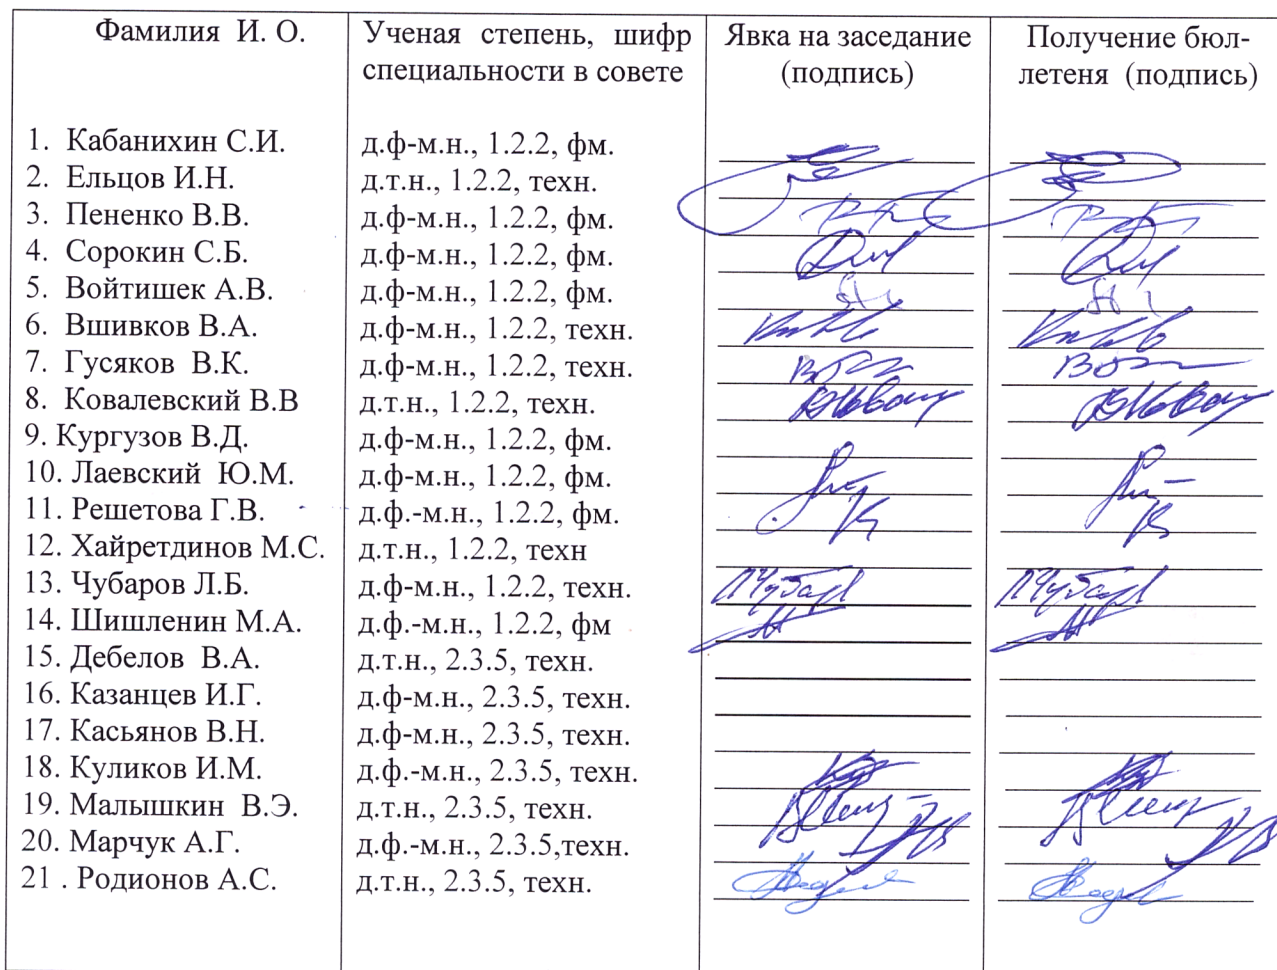 Фамилия И. О.
Ученая степень, шифр
специальности в совете
Явка на заседание
(подпись)
Получение бюл-
летеня (подпись)
1. Кабанихин С.И. д.ф-м.н., 1.2.2, фм.
2. Ельцов И.Н. д.т.н., 1.2.2, техн.
3. Пененко В.В. д.ф-м.н., 1.2.2, фм.
4. Сорокин С.Б. д.ф-м.н., 1.2.2, фм.
5. Войтишек А.В. д.ф-м.н., 1.2.2, фм.
6. Вшивков В.А. д.ф-м.н., 1.2.2, техн.
7. Гусяков В.К. д.ф-м.н., 1.2.2, техн.
8. Ковалевский В.В д.т.н., 1.2.2, техн.
9. Кургузов В.Д. д.ф-м.н., 1.2.2, фм.
10. Лаевский Ю.М. д.ф-м.н., 1.2.2, фм.
11. Решетова Г.В. д.ф.-м.н., 1.2.2, фм.
12. Хайретдинов М.С. д.т.н., 1.2.2, техн
13. Чубаров Л.Б. д.ф-м.н., 1.2.2, техн.
14. Шишленин М.А. д.ф.-м.н., 1.2.2, фм
15. Дебелов В.А. д.т.н., 2.3.5, техн.
16. Казанцев И.Г. д.ф-м.н., 2.3.5, техн.
17. Касьянов В.Н. д.ф-м.н., 2.3.5, техн.
18. Куликов И.М. д.ф.-м.н., 2.3.5, техн.
19. Малышкин В.Э. д.т.н., 2.3.5, техн.
20. Марчук А.Г. д.ф.-м.н., 2.3.5,техн.
21 . Родионов А.С. д.т.н., 2.3.5, техн.